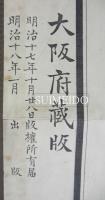 大阪府藏版
明治十七年十月廿八日版權所有届
明治十八年一月 出版
SUIMEIDO